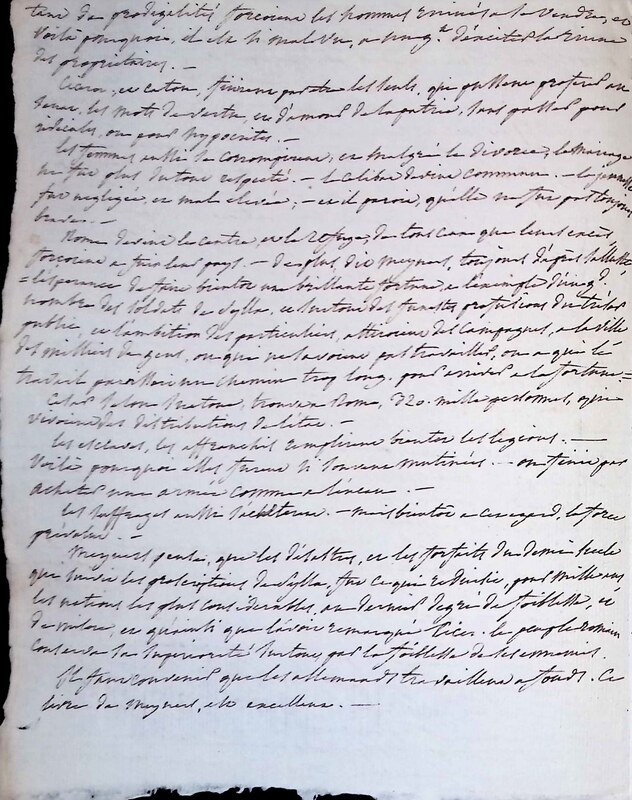 tant de prodigalités forcoient les hommes ruinés a se vendre, et
voilà pourquoi, il est si mal vu, a un gd. d'exciter la ruine
des propriétaires. —
Ciceron, et Caton, furent peutetre les seuls, qui pussent proferer au
senat, les mots de vertu, et d'amour de la patrie, sans passer pour
ridicules, ou pour hypocrites. —
Les femmes aussi se corrompirent, et malgré le divorce, le mariage
ne fut plus du tout respecté. — le celibat devint commun. — la jeunesse
fut negligée, et mal elevée; — et il paroit, qu'elle ne fut pas toujours
brave. —
Rome devint le centre, et le refuge, de tous ceux que leurs excès
forcoient a fuir leur pays. — de plus, dit Meyners, toujours d'après Salluste
= l'esperance de faire bientot une brillante fortune, a l'exemple d'un gd.
nombre des soldats de Sylla, et surtout des funestes profusions du trésor
public, et l'ambition des particuliers, attiroient des campagnes, a la ville
des milliers de gens, ou qui ne savoient pas travailler, ou a qui le
travail paroissoit un chemin trop long, pour arriver a la fortune =
César selon Suetone, trouva a Rome, 320. mille personnes, qui
vivoient des distributions de l'état. —
Les esclaves, les affranchis remplirent bientot les legions. —
voilà pourquoi elles furent si souvent mutinées. — on finit par
acheter une armée comme a l'encan. —
Les suffrages aussi s'achetèrent. — mais bientot a cet egard, la force
prévalut. —
Meyners pense, que les désastres, et les forfaits, du demi siecle
qui suivit les proscriptions de Sylla, fut ce qui reduisit, pour mille ans
les nations les plus considerables, au dernier degré de foiblesse, et
de malheur, et qu'ainsi que l'avoit remarqué Cicer. le peuple romain
conserva sa superiorité surtout, par la foiblesse de ses ennemis.
Il faut convenir que les allemands travaillent a fond. Ce
livre de Meyners, est excellent. —